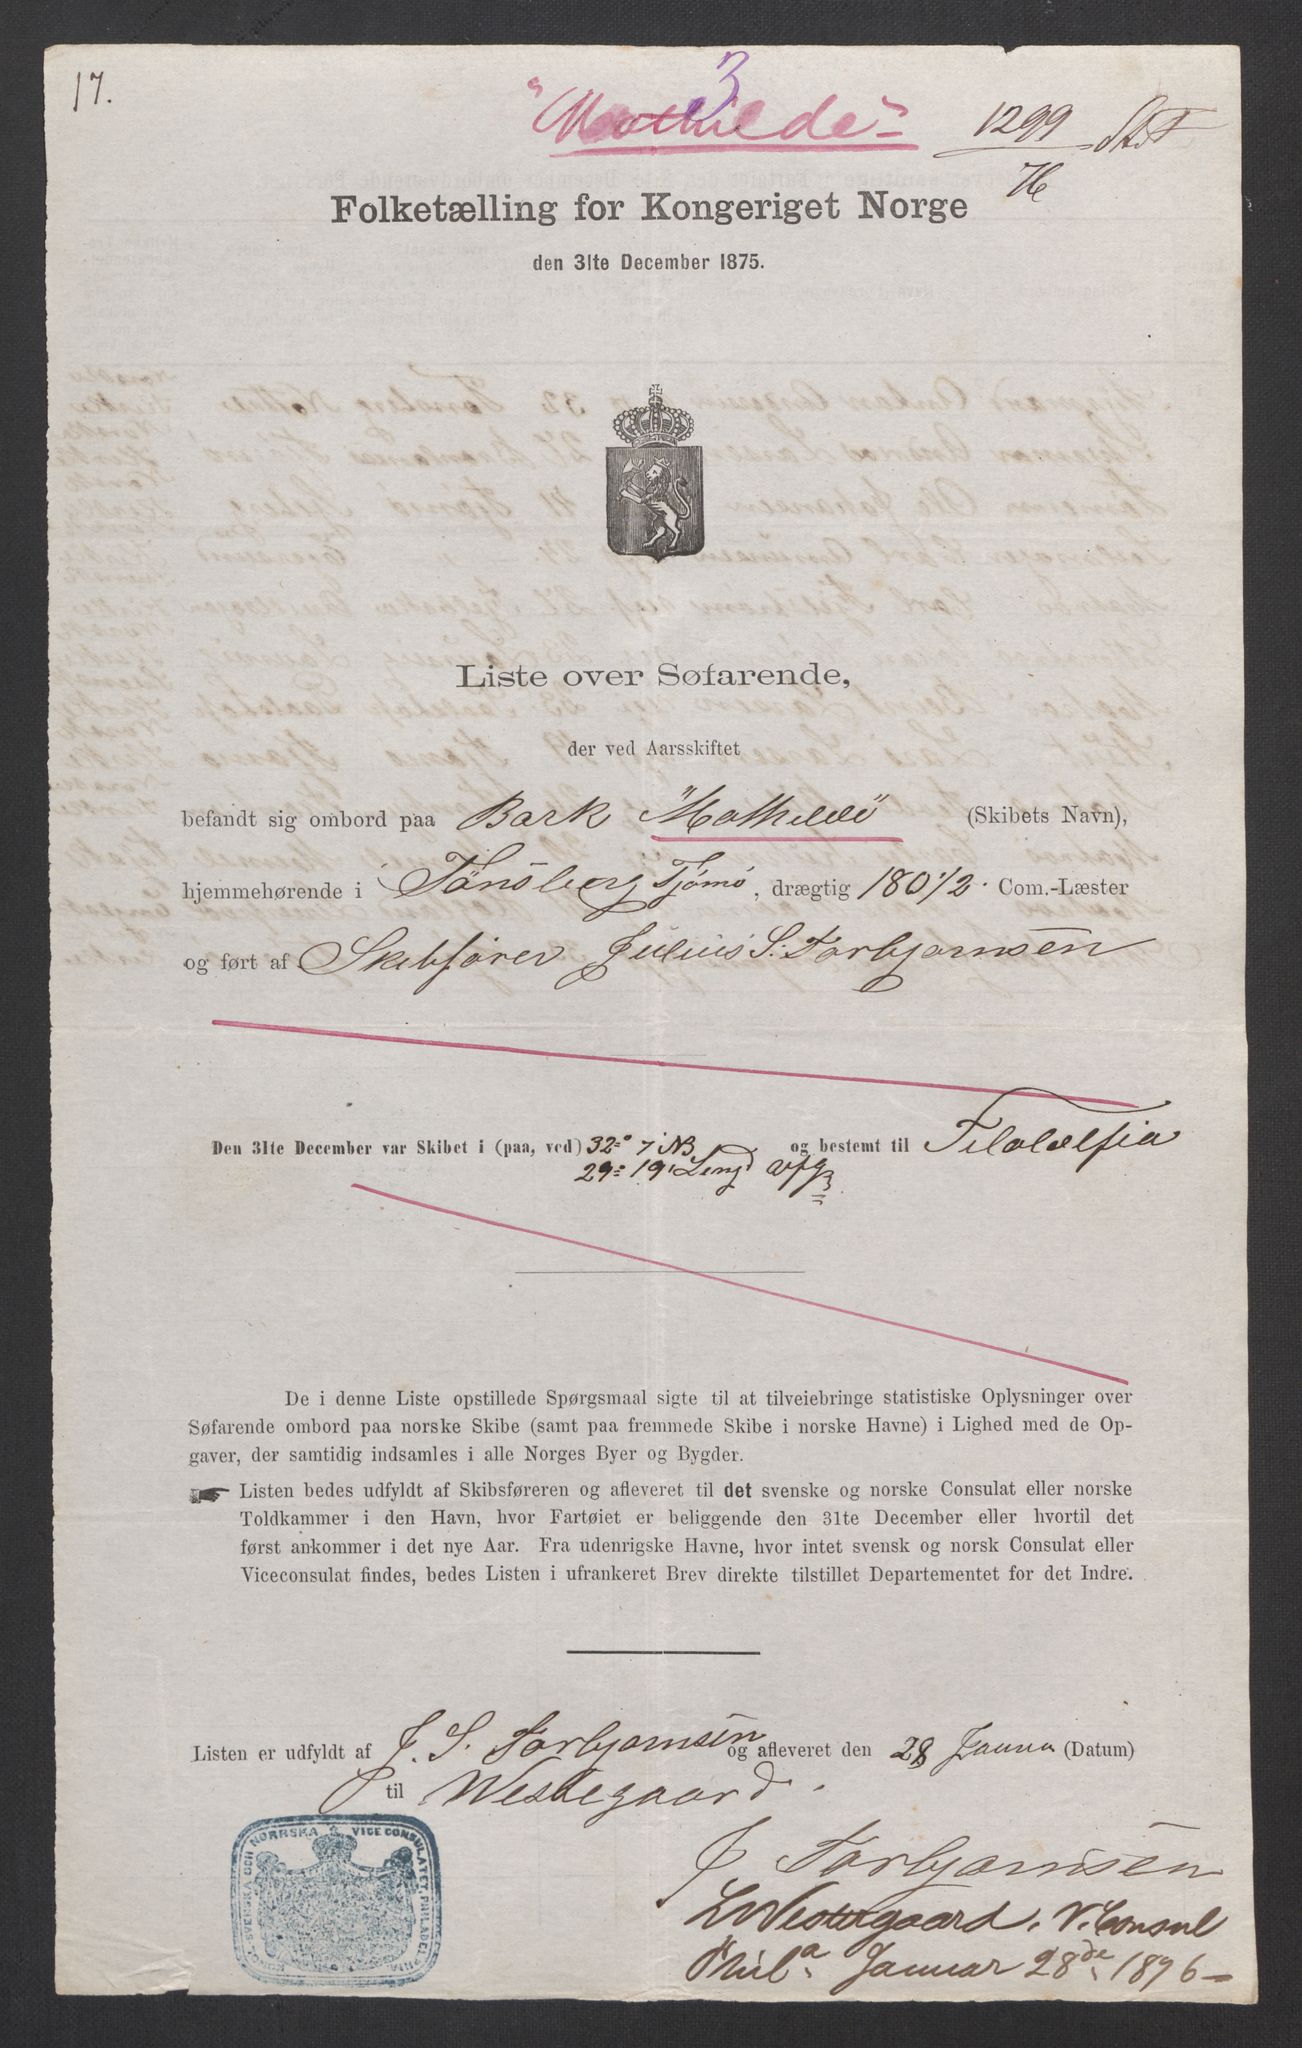 17.
3
"Mathilde"
1299
76
Folketælling for Kongeriget Norge
den 31te December 1875.
Liste over Søfarende,
der ved Aarsskiftet
befandt sig ombord paa Bark "Mathilde" (Skibets Navn),
hjemmehørende i Tønsberg Tjømø, drægtig 180 1/2. Com.-Læster
og ført af Skibsfører Julius S. Torbjørnsen
Den 31te December var Skibet i (paa, ved) 32° 7' NB og bestemt til Filadelfia
29° 19' Lengd
De i denne Liste opstillede Spørgsmaal sigte til at tilveiebringe statistiske Oplysninger over
Søfarende ombord paa norske Skibe (samt paa fremmede Skibe i norske Havne) i Lighed med de Op-
gaver, der samtidig indsamles i alle Norges Byer og Bygder.
Listen bedes udfyldt af Skibsføreren og afleveret til det svenske og norske Consulat eller norske
Toldkammer i den Havn, hvor Fartøiet er beliggende den 31te December eller hvortil det
først ankommer i det nye Aar. Fra udenrigske Havne, hvor intet svensk og norsk Consulat eller
Viceconsulat findes, bedes Listen i ufrankeret Brev direkte tilstillet Departementet for det Indre.
Listen er udfyldt af J. S. Torbjørnsen og afleveret den 28 Januar (Datum)
til Westegaard.
J Torbjørnsen
L Westergaard. V. Consul
Phil.a Januar 28de 1876
KONGL. SVENSKA OCH NORRSKA VICE CONSULATET, PHILADELPHIA